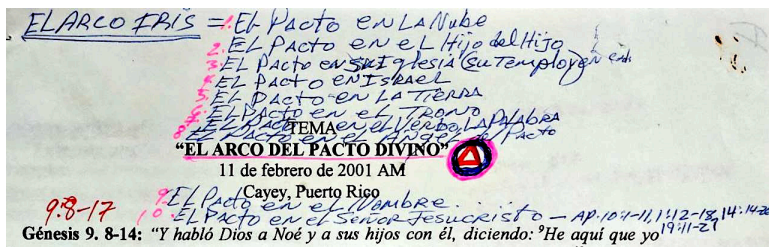 EL ARCO IRIS = 1. EL Pacto en LA Nube
2. EL PActo en eL Hijo del Hijo
3. EL Pacto en su Iglesia (su Templo) en
4. EL PActo en Israel
5. EL Pacto en LA Tierra
6. EL Pacto en el TRONO
EL Pacto en el Verbo, LA PALABRA
8. EL Pacto en el del Pacto
TEMA
“EL ARCO DEL PACTO DIVINO”
11 de febrero de 2001 AM
Cayey, Puerto Rico
9. EL Pacto en el Nombre...
9:8-17 10. EL PActo en el SEÑOR Jesucristo — AP. 10:1-11, 1:12-18, 14:14-20
19:11-21
Génesis 9. 8-14: “Y habló Dios a Noé y a sus hijos con él, diciendo: ⁹He aquí que yo